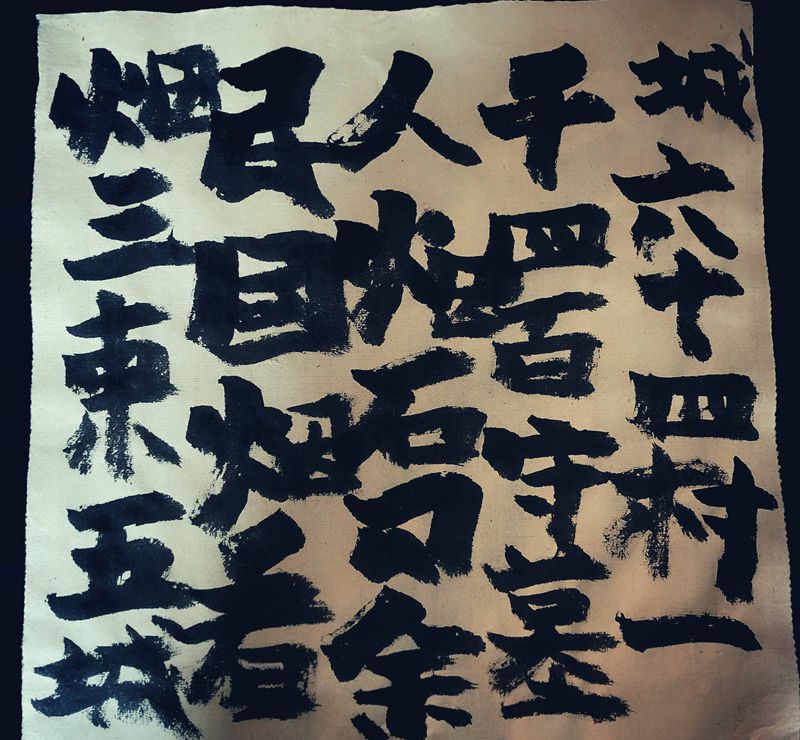 城六十四村一
千四百守墓
人烟石口余
民国烟看
烟三東五城